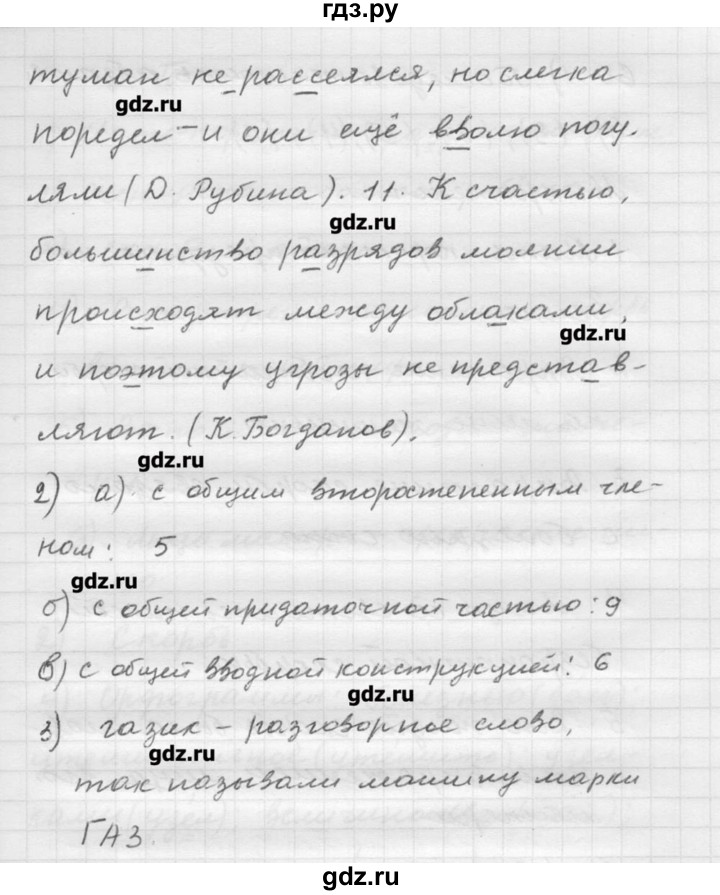 гдз.ру
туман не рассеялся, но слегка
gdz.ru
поредел – и они ещё вволю погу-
ляли (Д. Рубина). 11. К счастью,
gdz.ru
большинство разрядов молнии
происходят между облаками,
gdz.ru
и поэтому угрозы не представ-
ляют. (К. Богданов).
gdz.ru
2) а) с общим второстепенным чле-
ном: 5
gdz.ru
б) с общей придаточной частью: 9
в) с общей вводной конструкцией: 6
gdz.ru
3) газик – разговорное слово,
gdz.ru
так называли машину марки
ГАЗ.
gdz.ru